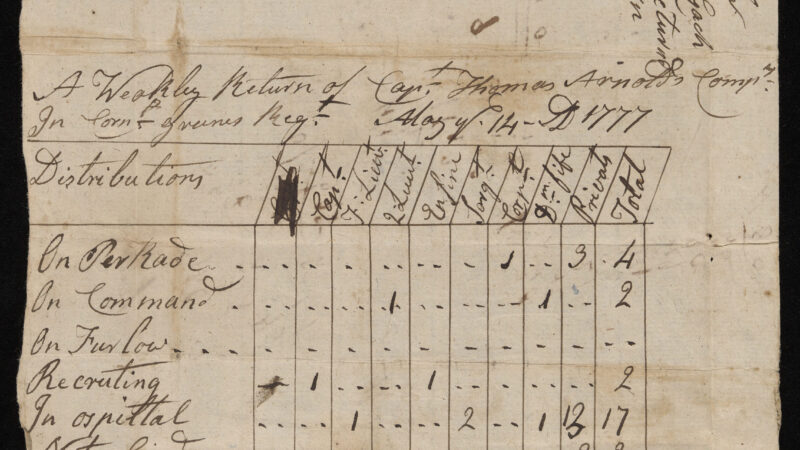 Gach
Return
A Weakley Return of Capt Thomas Arnolds Compy
In Cornll Greenes Regt May ye 14 - D 1777
Distributions Capt F: Lieut 2 Lieut Ensine Sergt Corpt Dm fife Privats Total
On Perkade 1 3 4
On Command 1 1 2
On Furlow
Recruting 1 1 2
In ospittal 1 2 1 13 17